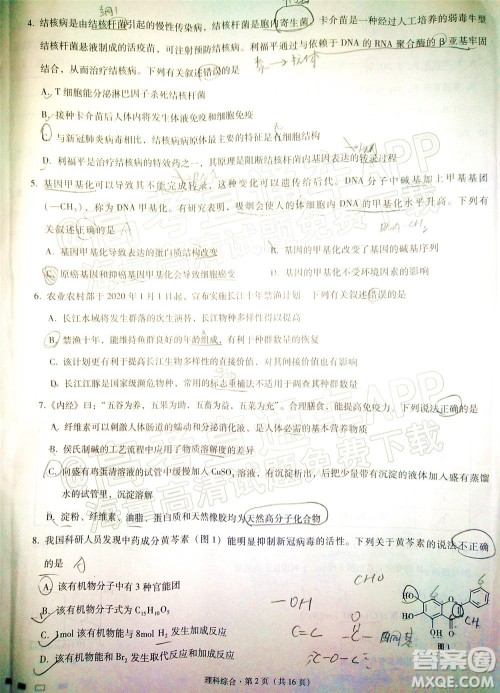 4. 结核病是由结核杆菌引起的慢性传染病，结核杆菌是胞内寄生菌。卡介苗是一种经过人工培养的弱毒牛型
结核杆菌悬液制成的活疫苗，可用于预防结核病。利福平通过与依赖于DNA的RNA聚合酶的β亚基牢固
结合，治疗结核病。下列有关叙述错误的是
A. T细胞能分泌淋巴因子杀死结核杆菌
B. 接种卡介苗后人体内将发生体液免疫
C. 与新冠肺炎病毒相比，结核病病原体最主要的特征是有细胞结构
D. 利福平用于治疗结核病的有效药物之一，其原理是阻断结核杆菌基因表达的转录过程
5. 基因甲基化可以导致其不能完成转录，这种变化可能遗传给后代。DNA分子中碱基上加上甲基基团
（—CH₃），称为DNA甲基化。有研究表明，吸烟会使人的体细胞内DNA的甲基化水平升高。下列有关
叙述正确的是
A. 基因甲基化导致表达的蛋白质结构改变
B. 基因甲基化改变了基因的碱基序列
C. 原癌基因和抑癌基因甲基化会导致细胞癌变
D. 基因甲基化不受环境因素的影响
6. 农业农村部于2020年1月1日起，宣布实施长江十年禁渔计划。下列有关叙述错误的是
A. 长江水域将发生群落的次生演替，增大物种的丰富度
B. 禁渔，能维持鱼群良好的年龄组成，有利于种群数量的恢复
C. 此计划更有利于提高长江生物多样性的直接价值
D. 长江江豚是国家级濒危动物，常用的标志重捕法不可用于调查其种群数量
7.《内经》曰：“五谷为养，五果为助，五畜为益，五菜为充”，合理膳食，能提高免疫力。下列说法正确的是
A. 纤维素可以刺激人体肠道的蠕动和消化液的分泌，是人体必需的基本营养物质
B. 侯氏制碱的工艺流程中应用了物质溶解度的差异
C. 向盛有鸡蛋清溶液的试管中滴入CuSO₄溶液，有沉淀析出，后把少量带有沉淀的液体加入盛有蒸馏
水的试管里，沉淀溶解
D. 淀粉、纤维素、油脂、蛋白质、核酸均为天然高分子化合物
8. 我国科研人员发现中药成分黄芩素（图1）能明显抑制新冠病毒的活性。下列关于黄芩素的说法不正确
的是
A. 该有机物分子中有3种官能团
B. 该有机物分子式为C₁₅H₁₀O₅
C. 1mol该有机物能与8mol H₂发生加成反应
D. 该有机物能和Br₂发生取代反应和加成反应
CHO
—OH
图1
理科综合·第2页（共16页）
答案圈